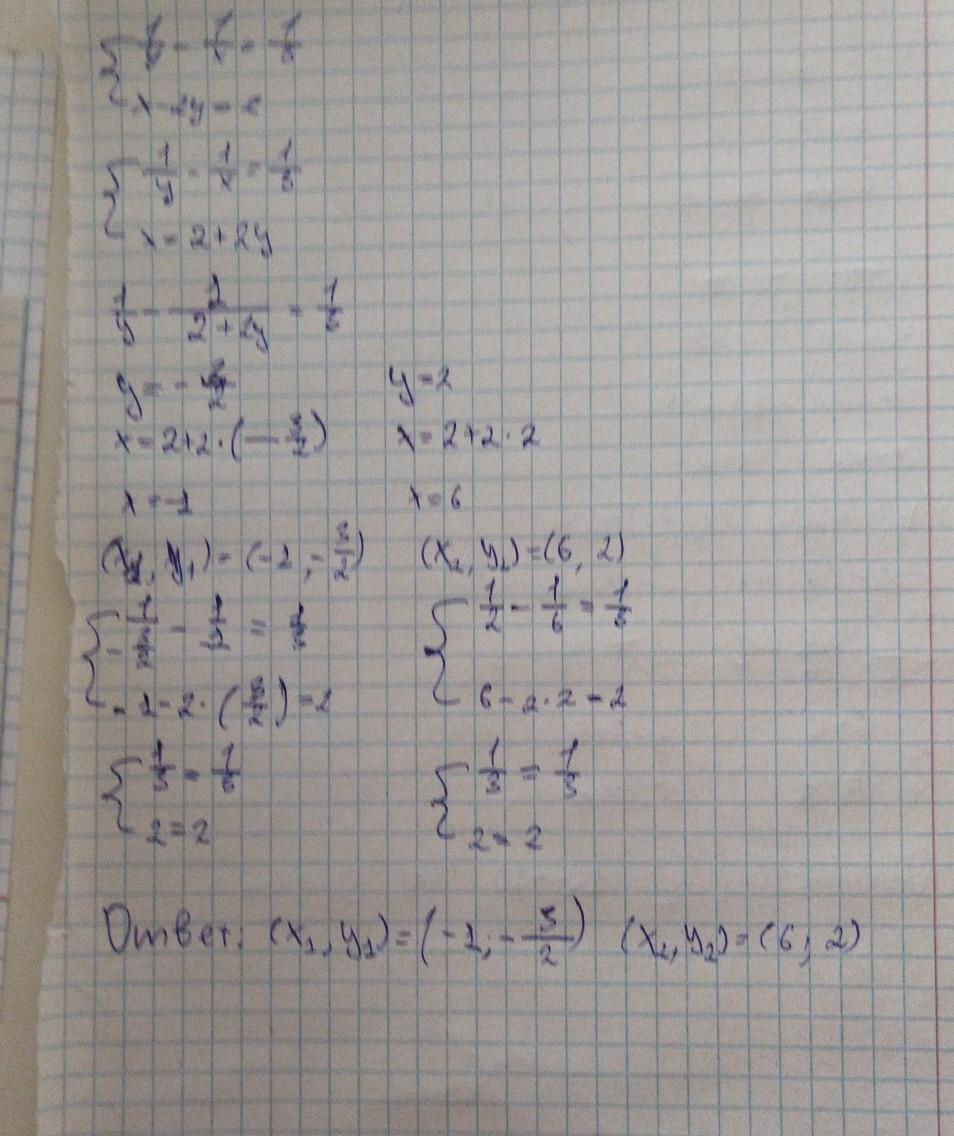 { 1/y - 1/x = 1/3
x - 2y = 2
{ 1/y - 1/x = 1/3
x = 2 + 2y
1/y - 1/(2 + 2y) = 1/3
y = -3/2 y = 2
x = 2+2·(-3/2) x = 2+2·2
x = -1 x = 6
(x₁, y₁) = (-1, -3/2) (x₂, y₂) = (6, 2)
1/2 - 1/6 = 1/3
-1 - 2·(3/2) = 2 6 - 2·2 = 2
{ 1/3 = 1/3 { 1/3 = 1/3
2 = 2 2 = 2
Ответ: (x₁, y₁) = (-1; -3/2) (x₂, y₂) = (6, 2)